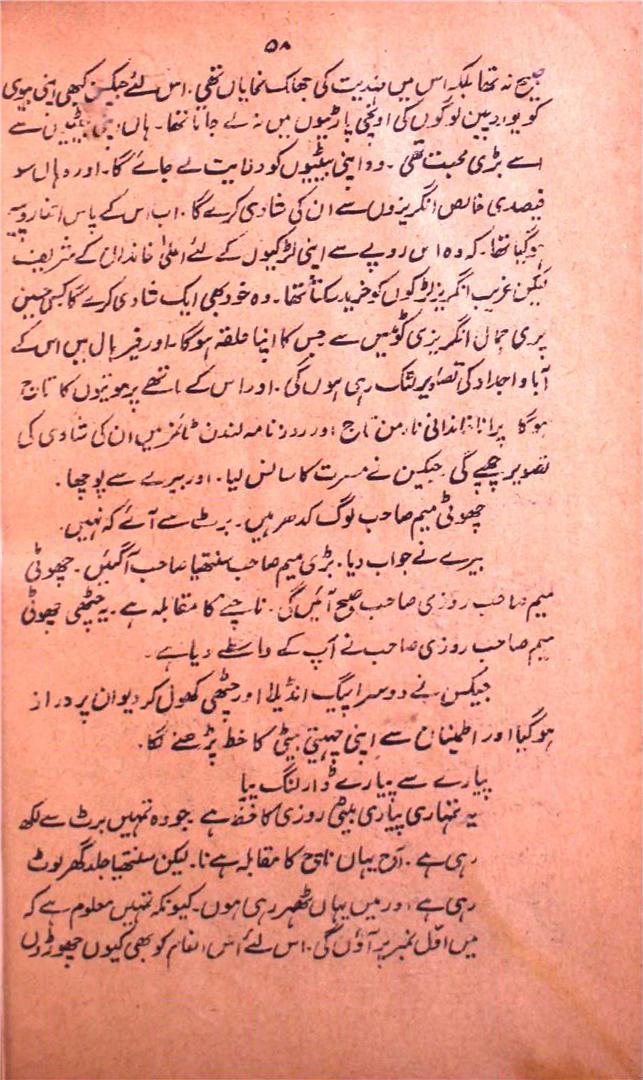 ۵۸
صبیح نہ تھا بلکہ اس میں ہندیت کی جھلک نمایاں تھی۔ اس لئے جیکسن کبھی اپنی بیوی
کو یوروپین لوگوں کی اونچی پارٹیوں میں نہ لے جاتا تھا۔ ہاں اپنی بیٹیوں سے
اسے بڑی محبت تھی۔ وہ اپنی بیٹیوں کو ولایت لے جائے گا۔ اور وہاں سو
فیصدی خالص انگریزوں سے ان کی شادی کرے گا۔ اب اس کے پاس اتنا روپیہ
ہو گیا تھا۔ کہ وہ اس روپے سے اپنی لڑکیوں کے لئے اعلیٰ خاندان کے شریف
لیکن غریب انگریز لڑکوں کو خرید سکتا تھا۔ وہ خود بھی ایک شادی کرے گا کسی حسین
پری جمال انگریزی کونٹیس سے جس کا اپنا حلقہ ہوگا۔ اور فیر ہال میں اس کے
آبا و اجداد کی تصاویر لٹک رہی ہوں گی۔ اور اس کے ماتھے پر موتیوں کا تاج
ہوگا پرانا خاندانی نارمن تاج اور روزنامہ لندن ٹائمز میں ان کی شادی کی
تصویر چھپے گی جیکسن نے مسرت کا سانس لیا۔ اور بیرے سے پوچھا۔
چھوٹی میم صاحب لوگ کدھر ہیں۔ برٹ سے آئے کہ نہیں۔
بیرے نے جواب دیا۔ بڑی میم صاحب سنتھیا صاحب آگئیں۔ چھوٹی
میم صاحب روزی صاحب صبح آئیں گی۔ ناچنے کا مقابلہ ہے۔ یہ چٹھی چھوٹی
میم صاحب روزی صاحب نے آپ کے واسطے دیا ہے۔
جیکسن نے دوسرا پیگ انڈیلا اور چٹھی کھول کر دیوان پر دراز
ہو گیا اور اطمینان سے اپنی چہیتی بیٹی کا خط پڑھنے لگا۔
پیارے سے پیارے ڈارلنگ پپا
یہ تمہاری پیاری بیٹی روزی کا خط ہے۔ جو وہ تمہیں برٹ سے لکھ
رہی ہے۔ آج یہاں ناچ کا مقابلہ ہے نا۔ لیکن سنتھیا جلد گھر لوٹ
رہی ہے اور میں یہاں ٹھہر رہی ہوں۔ کیونکہ تمہیں معلوم ہے کہ
میں اوّل نمبر پر آؤں گی۔ اس لئے اس انعام کو بھی کیوں چھوڑ دوں